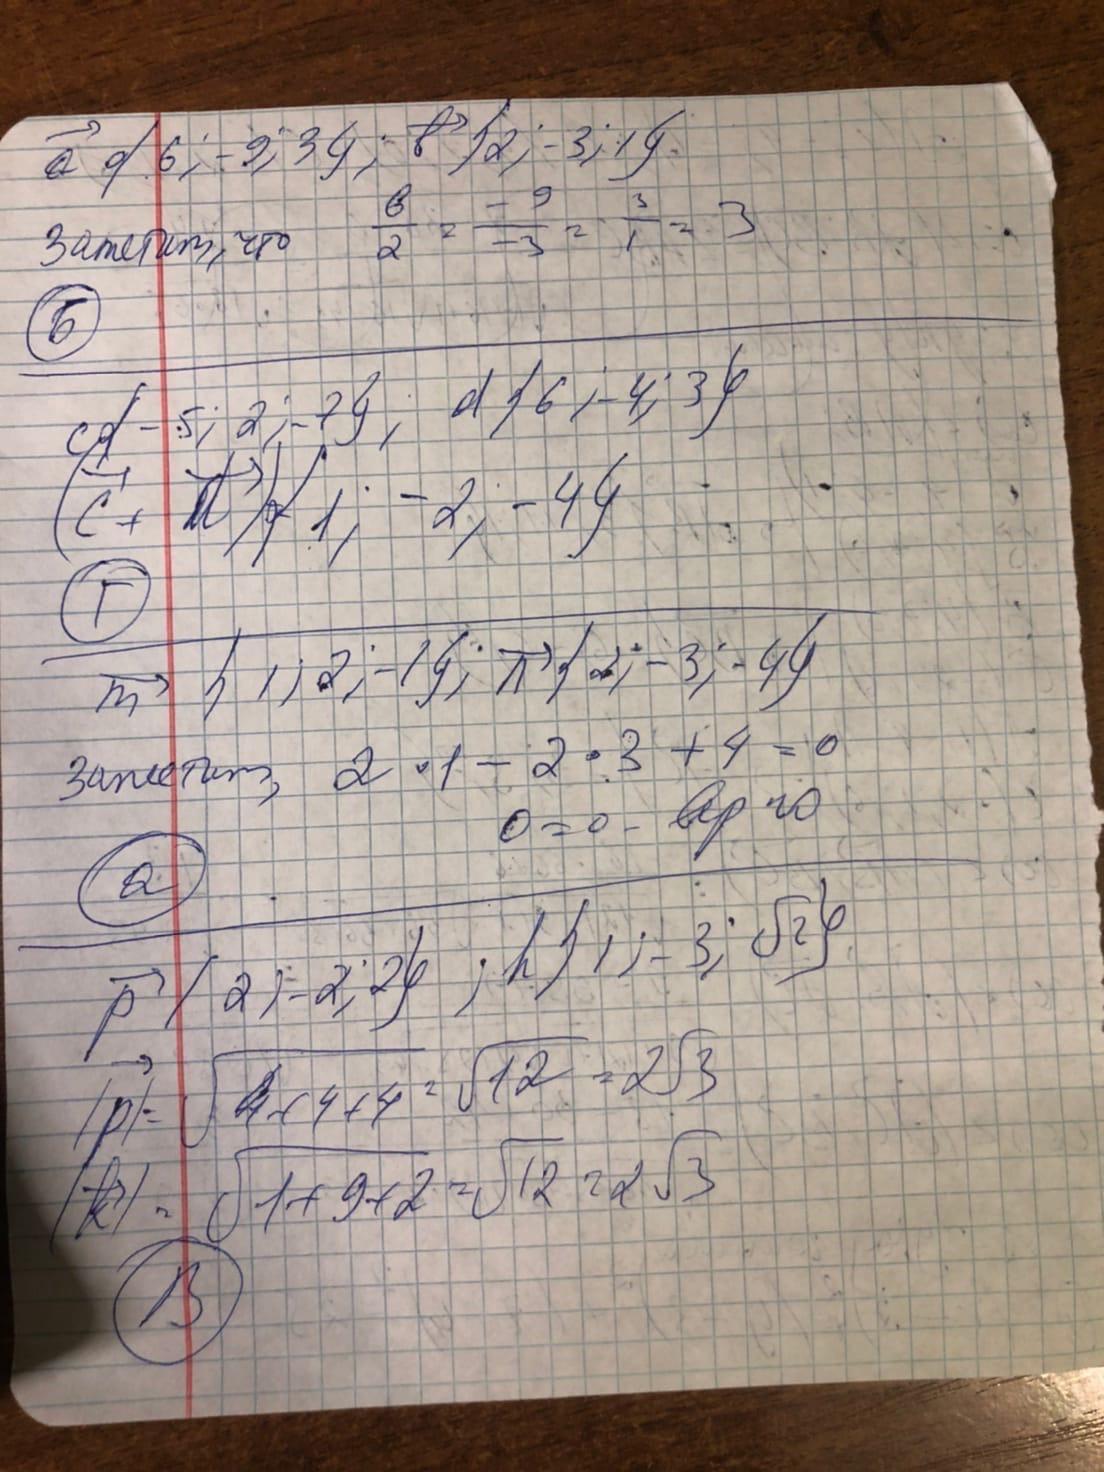 a⃗ {6; -9; 3}; b⃗ {2; -3; 1}
Заметим, что 6/2 = -9/-3 = 3/1 = 3
б
c{-5; 2; -7}; d{6; -4; 3}
(c⃗ + d⃗){1; -2; -4}
Г
m⃗ {1; 2; -1}; n⃗ {2; -3; -4}
Заметим, 2 · 1 - 2 · 3 + 4 = 0
0 = 0 - верно
а
p⃗ {2; -2; 2}; k{1; -3; √2}
|p⃗| = √4+4+4 = √12 = 2√3
|k⃗| = √1+9+2 = √12 = 2√3
В